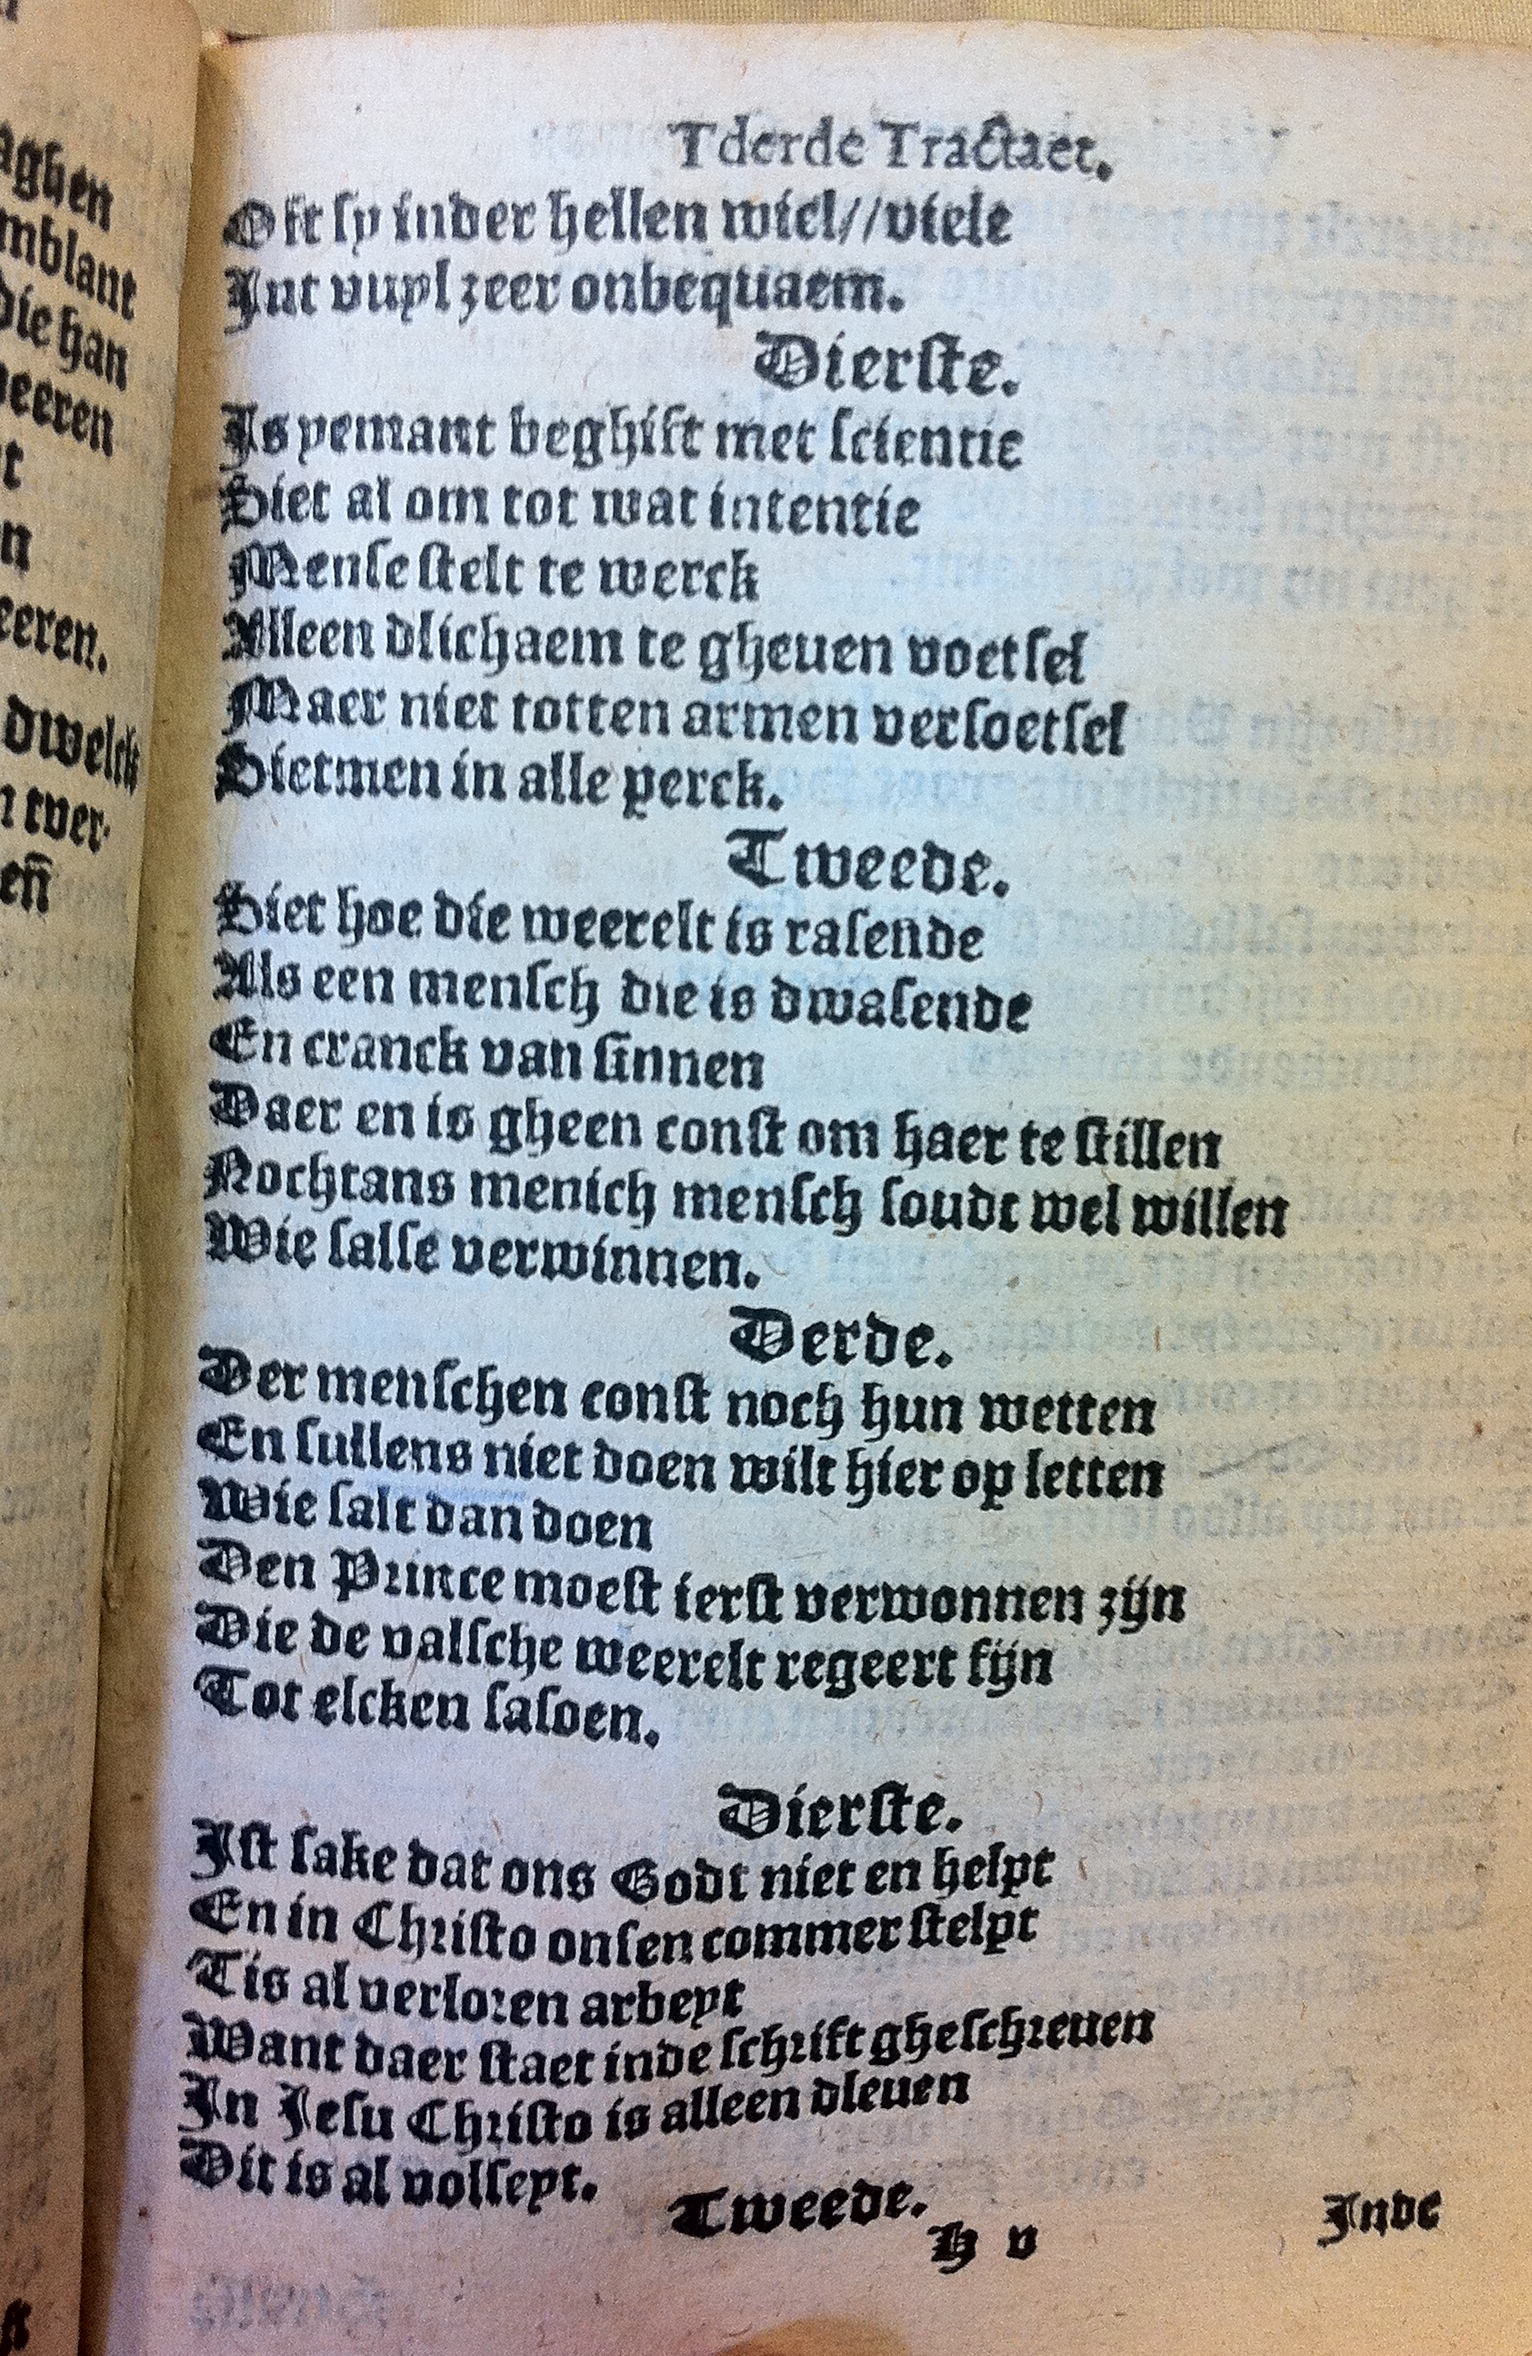 aghen
mblant
die han
eeren
t
n
eeren.
dwelck
n tver-
en̄
Tderde Tractaet.
Oft sy inder hellen wiel//viele
Int vuyl zeer onbequaem.
Dierste.
Is yemant beghift met scientie
Siet al om tot wat intentie
Mense stelt te werck
Alleen dlichaem te gheuen voetsel
Maer niet totten armen versoetsel
Sietmen in alle perck.
Tweede.
Siet hoe die weerelt is rasende
Als een mensch die is dwasende
En cranck van sinnen
Daer en is gheen const om haer te stillen
Nochtans menich mensch soudt wel willen
Wie salse verwinnen.
Derde.
Der menschen const noch hun wetten
En sullens niet doen wilt hier op letten
Wie salt dan doen
Den Prince moest ierst verwonnen zijn
Die de valsche weerelt regeert fijn
Tot elcken sasoen.
Dierste.
Ist sake dat ons Godt niet en helpt
En in Christo onsen commer stelpt
Tis al verloren arbeyt
Want daer staet inde schrift gheschreuen
In Jesu Christo is alleen dleuen
Dit is al volseyt.
Tweede.
H v
Inde